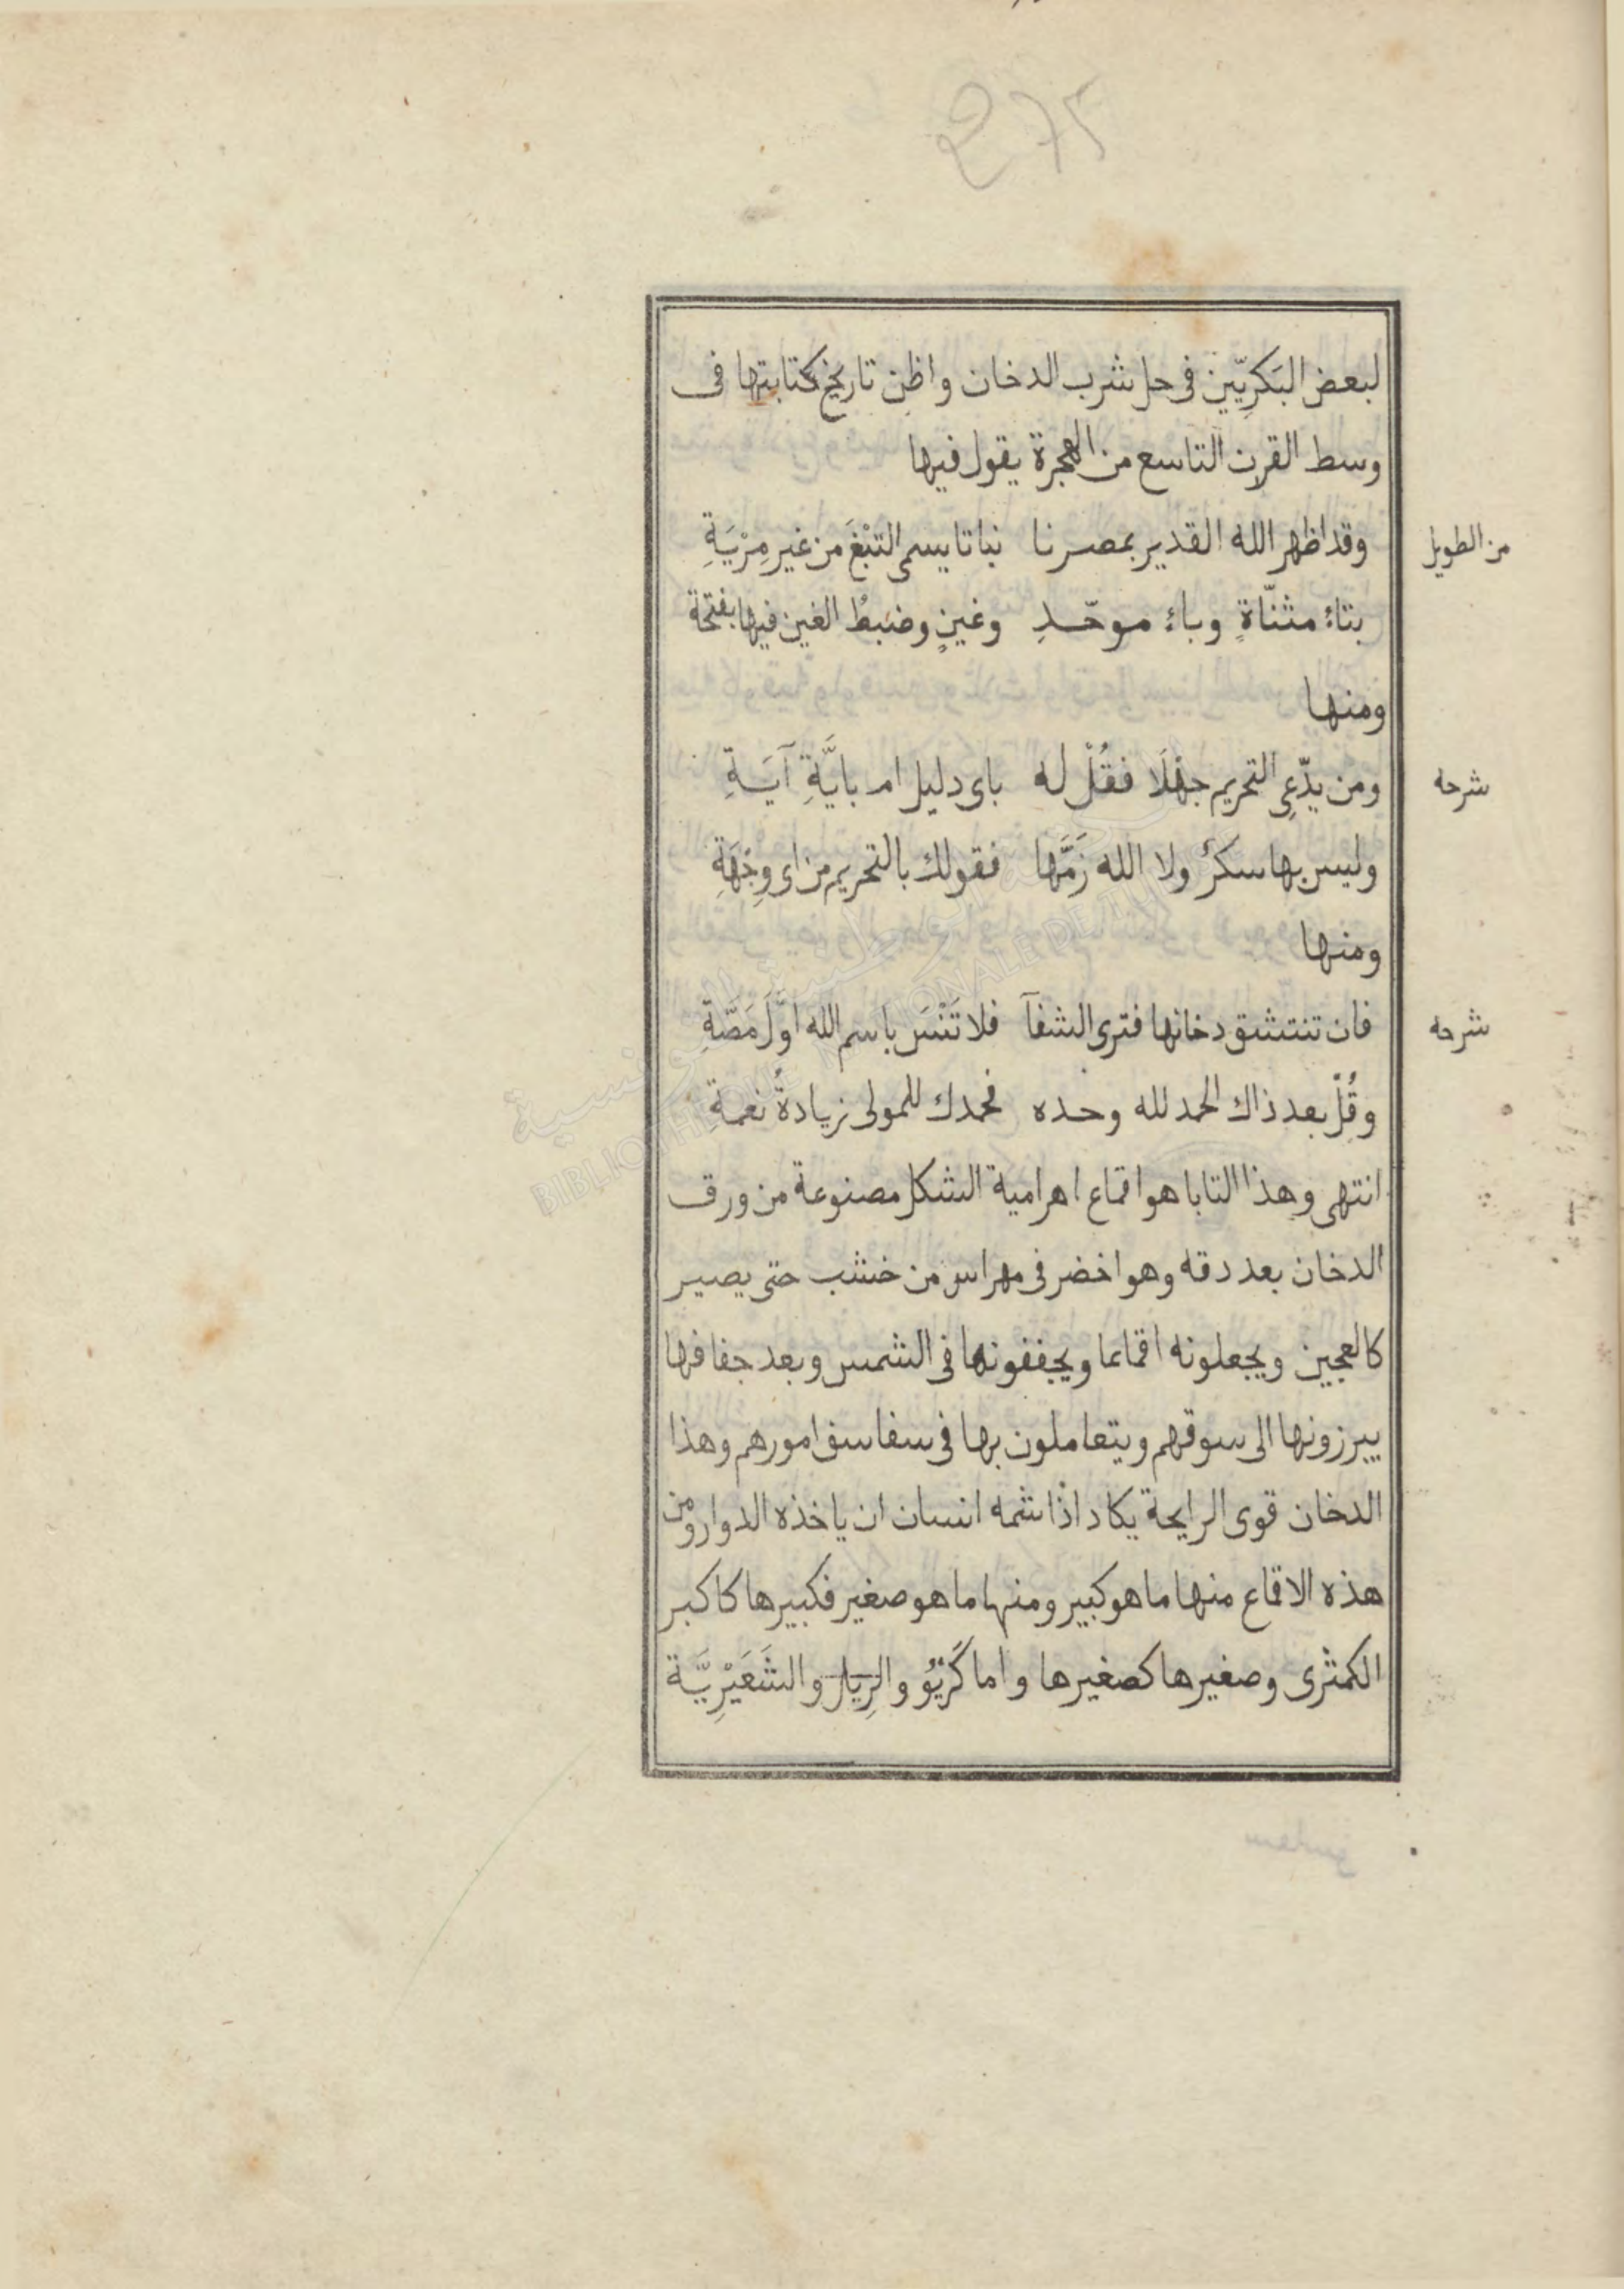 لبعض البَكرِيّين فى حل شرب الدخان واظن تاريخ كتابتها فى
وسط القرن التاسع من الهجرة يقول فيها
من الطويل
وقد اظهر الله القدير بمصرنا نباتا يسمى التَبْغَ من غير مِرْيَةِ
بتاءٍ مثنّاةٍ وباءٍ موحّدِ وغينٍ وضبطُ الغين فيها بفتحة
ومنها
شرحه
ومن يدّعى التحريم جهْلَا فقُلْ له باى دليل ام بايَّةِ آيَةِ
وليس بها سكرٌ ولا الله ذَمَّها فقولك بالتحريم من اى وِجْهَةِ
ومنها
شرحه
فان تنتشق دخانها فترى الشفآ فلا تَنْسَ باسم الله اوَّلَ مَصَّةِ
وقُلْ بعد ذاك الحمد لله وحده فحمدك للمولى زيادةُ نعمة
انتهى وهذا التابا هو اقماع اهرامية الشكل مصنوعة من ورق
الدخان بعد دقه وهو اخضر فى مهراس من خشب حتى يصير
كالعجين ويجعلونه اقماعا ويجففونها فى الشمس وبعد جفافها
يبرزونها الى سوقهم ويتعاملون بها فى سفاسف امورهم وهذا
الدخان قوى الرايحة يكاد اذا شمه انسان ان ياخذه الدوار ومن
هذه الاقماع منها ما هو كبير ومنها ما هو صغير فكبيرها كاكبر
الكمثرى وصغيرها كصغيرها واما كَرِيُو والرِيال والشَعَيْرِيَّة
BIBLIOTHEQUE NATIONALE DE TUNISIE